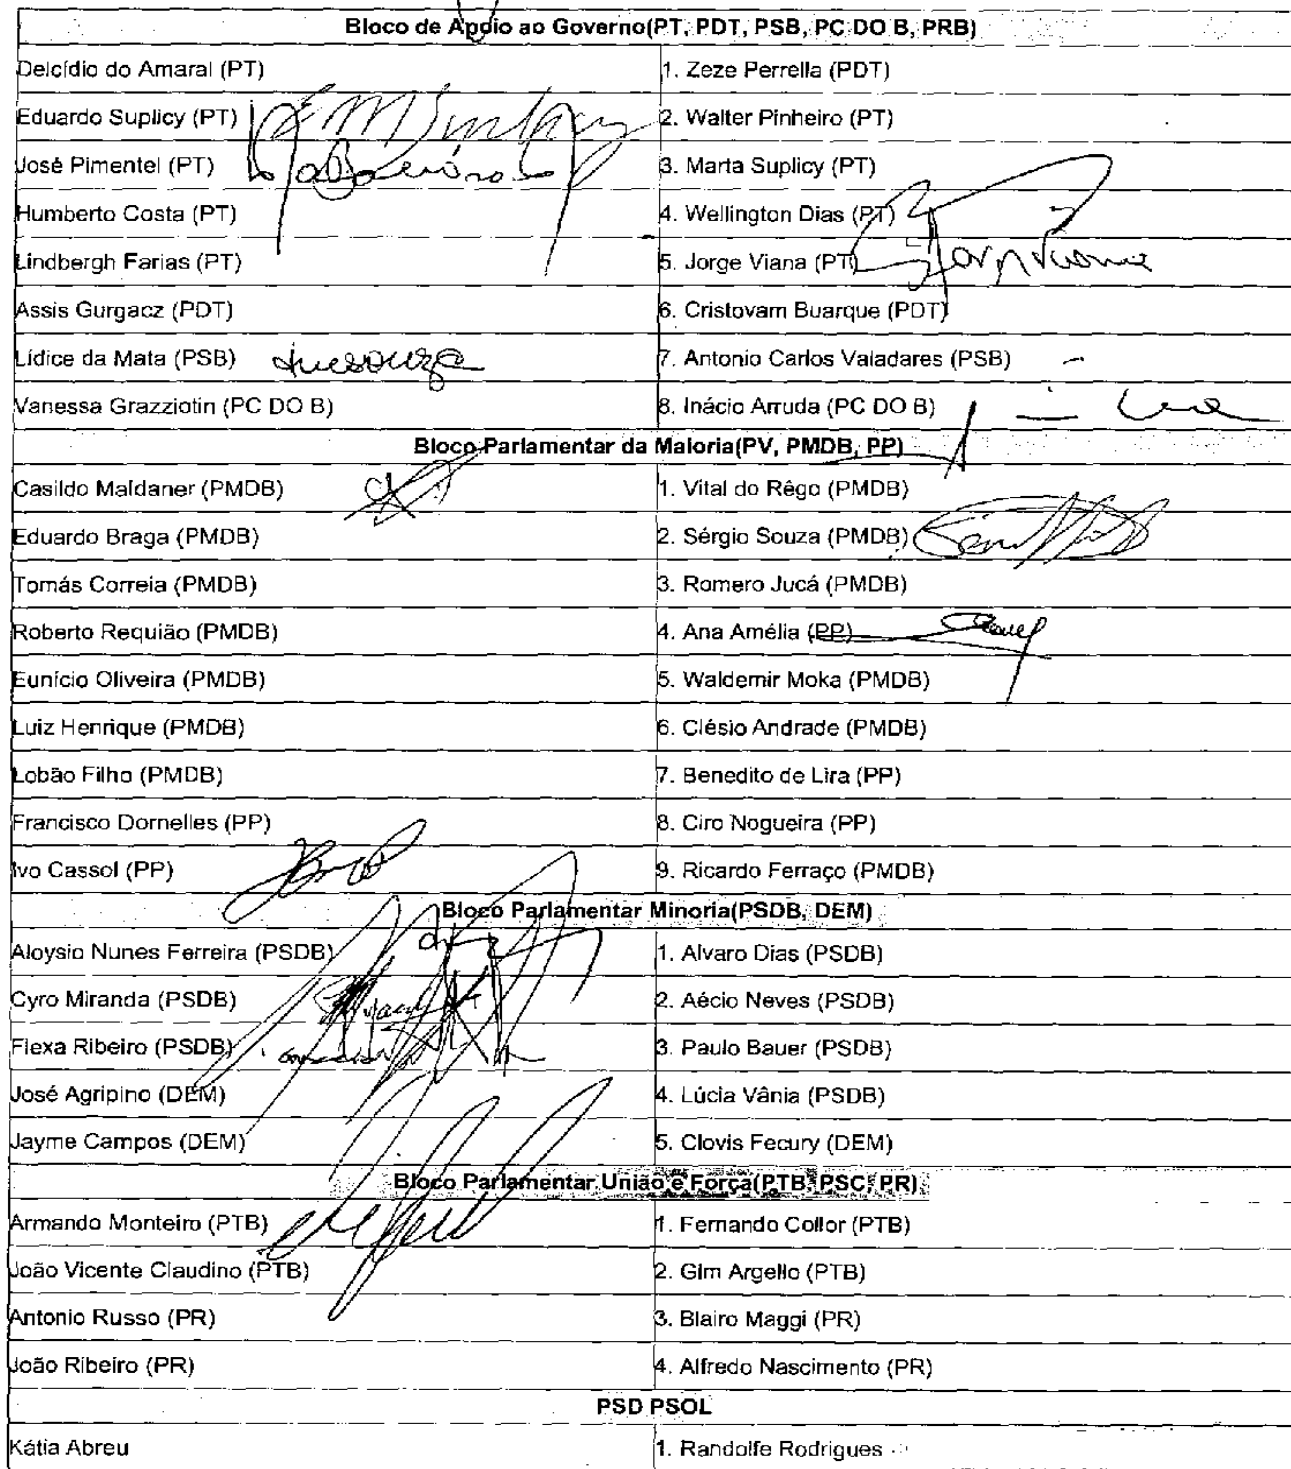 Bloco de Apoio ao Governo(PT, PDT, PSB, PC DO B, PRB)
Delcídio do Amaral (PT) 1. Zeze Perrella (PDT)
Eduardo Suplicy (PT) 2. Walter Pinheiro (PT)
José Pimentel (PT) 3. Marta Suplicy (PT)
Humberto Costa (PT) 4. Wellington Dias (PT)
Lindbergh Farias (PT) 5. Jorge Viana (PT)
Assis Gurgacz (PDT) 6. Cristovam Buarque (PDT)
Lídice da Mata (PSB) 7. Antonio Carlos Valadares (PSB)
Vanessa Grazziotin (PC DO B) 8. Inácio Arruda (PC DO B)
Bloco Parlamentar da Maioria(PV, PMDB, PP)
Casildo Maldaner (PMDB) 1. Vital do Rêgo (PMDB)
Eduardo Braga (PMDB) 2. Sérgio Souza (PMDB)
Tomás Correia (PMDB) 3. Romero Jucá (PMDB)
Roberto Requião (PMDB) 4. Ana Amélia (PP)
Eunício Oliveira (PMDB) 5. Waldemir Moka (PMDB)
Luiz Henrique (PMDB) 6. Clésio Andrade (PMDB)
Lobão Filho (PMDB) 7. Benedito de Lira (PP)
Francisco Dornelles (PP) 8. Ciro Nogueira (PP)
Ivo Cassol (PP) 9. Ricardo Ferraço (PMDB)
Bloco Parlamentar Minoria(PSDB, DEM)
Aloysio Nunes Ferreira (PSDB) 1. Alvaro Dias (PSDB)
Cyro Miranda (PSDB) 2. Aécio Neves (PSDB)
Flexa Ribeiro (PSDB) 3. Paulo Bauer (PSDB)
José Agripino (DEM) 4. Lúcia Vânia (PSDB)
Jayme Campos (DEM) 5. Clovis Fecury (DEM)
Bloco Parlamentar União e Força(PTB, PSC, PR)
Armando Monteiro (PTB) 1. Fernando Collor (PTB)
João Vicente Claudino (PTB) 2. Gim Argello (PTB)
Antonio Russo (PR) 3. Blairo Maggi (PR)
João Ribeiro (PR) 4. Alfredo Nascimento (PR)
PSD PSOL
Kátia Abreu 1. Randolfe Rodrigues